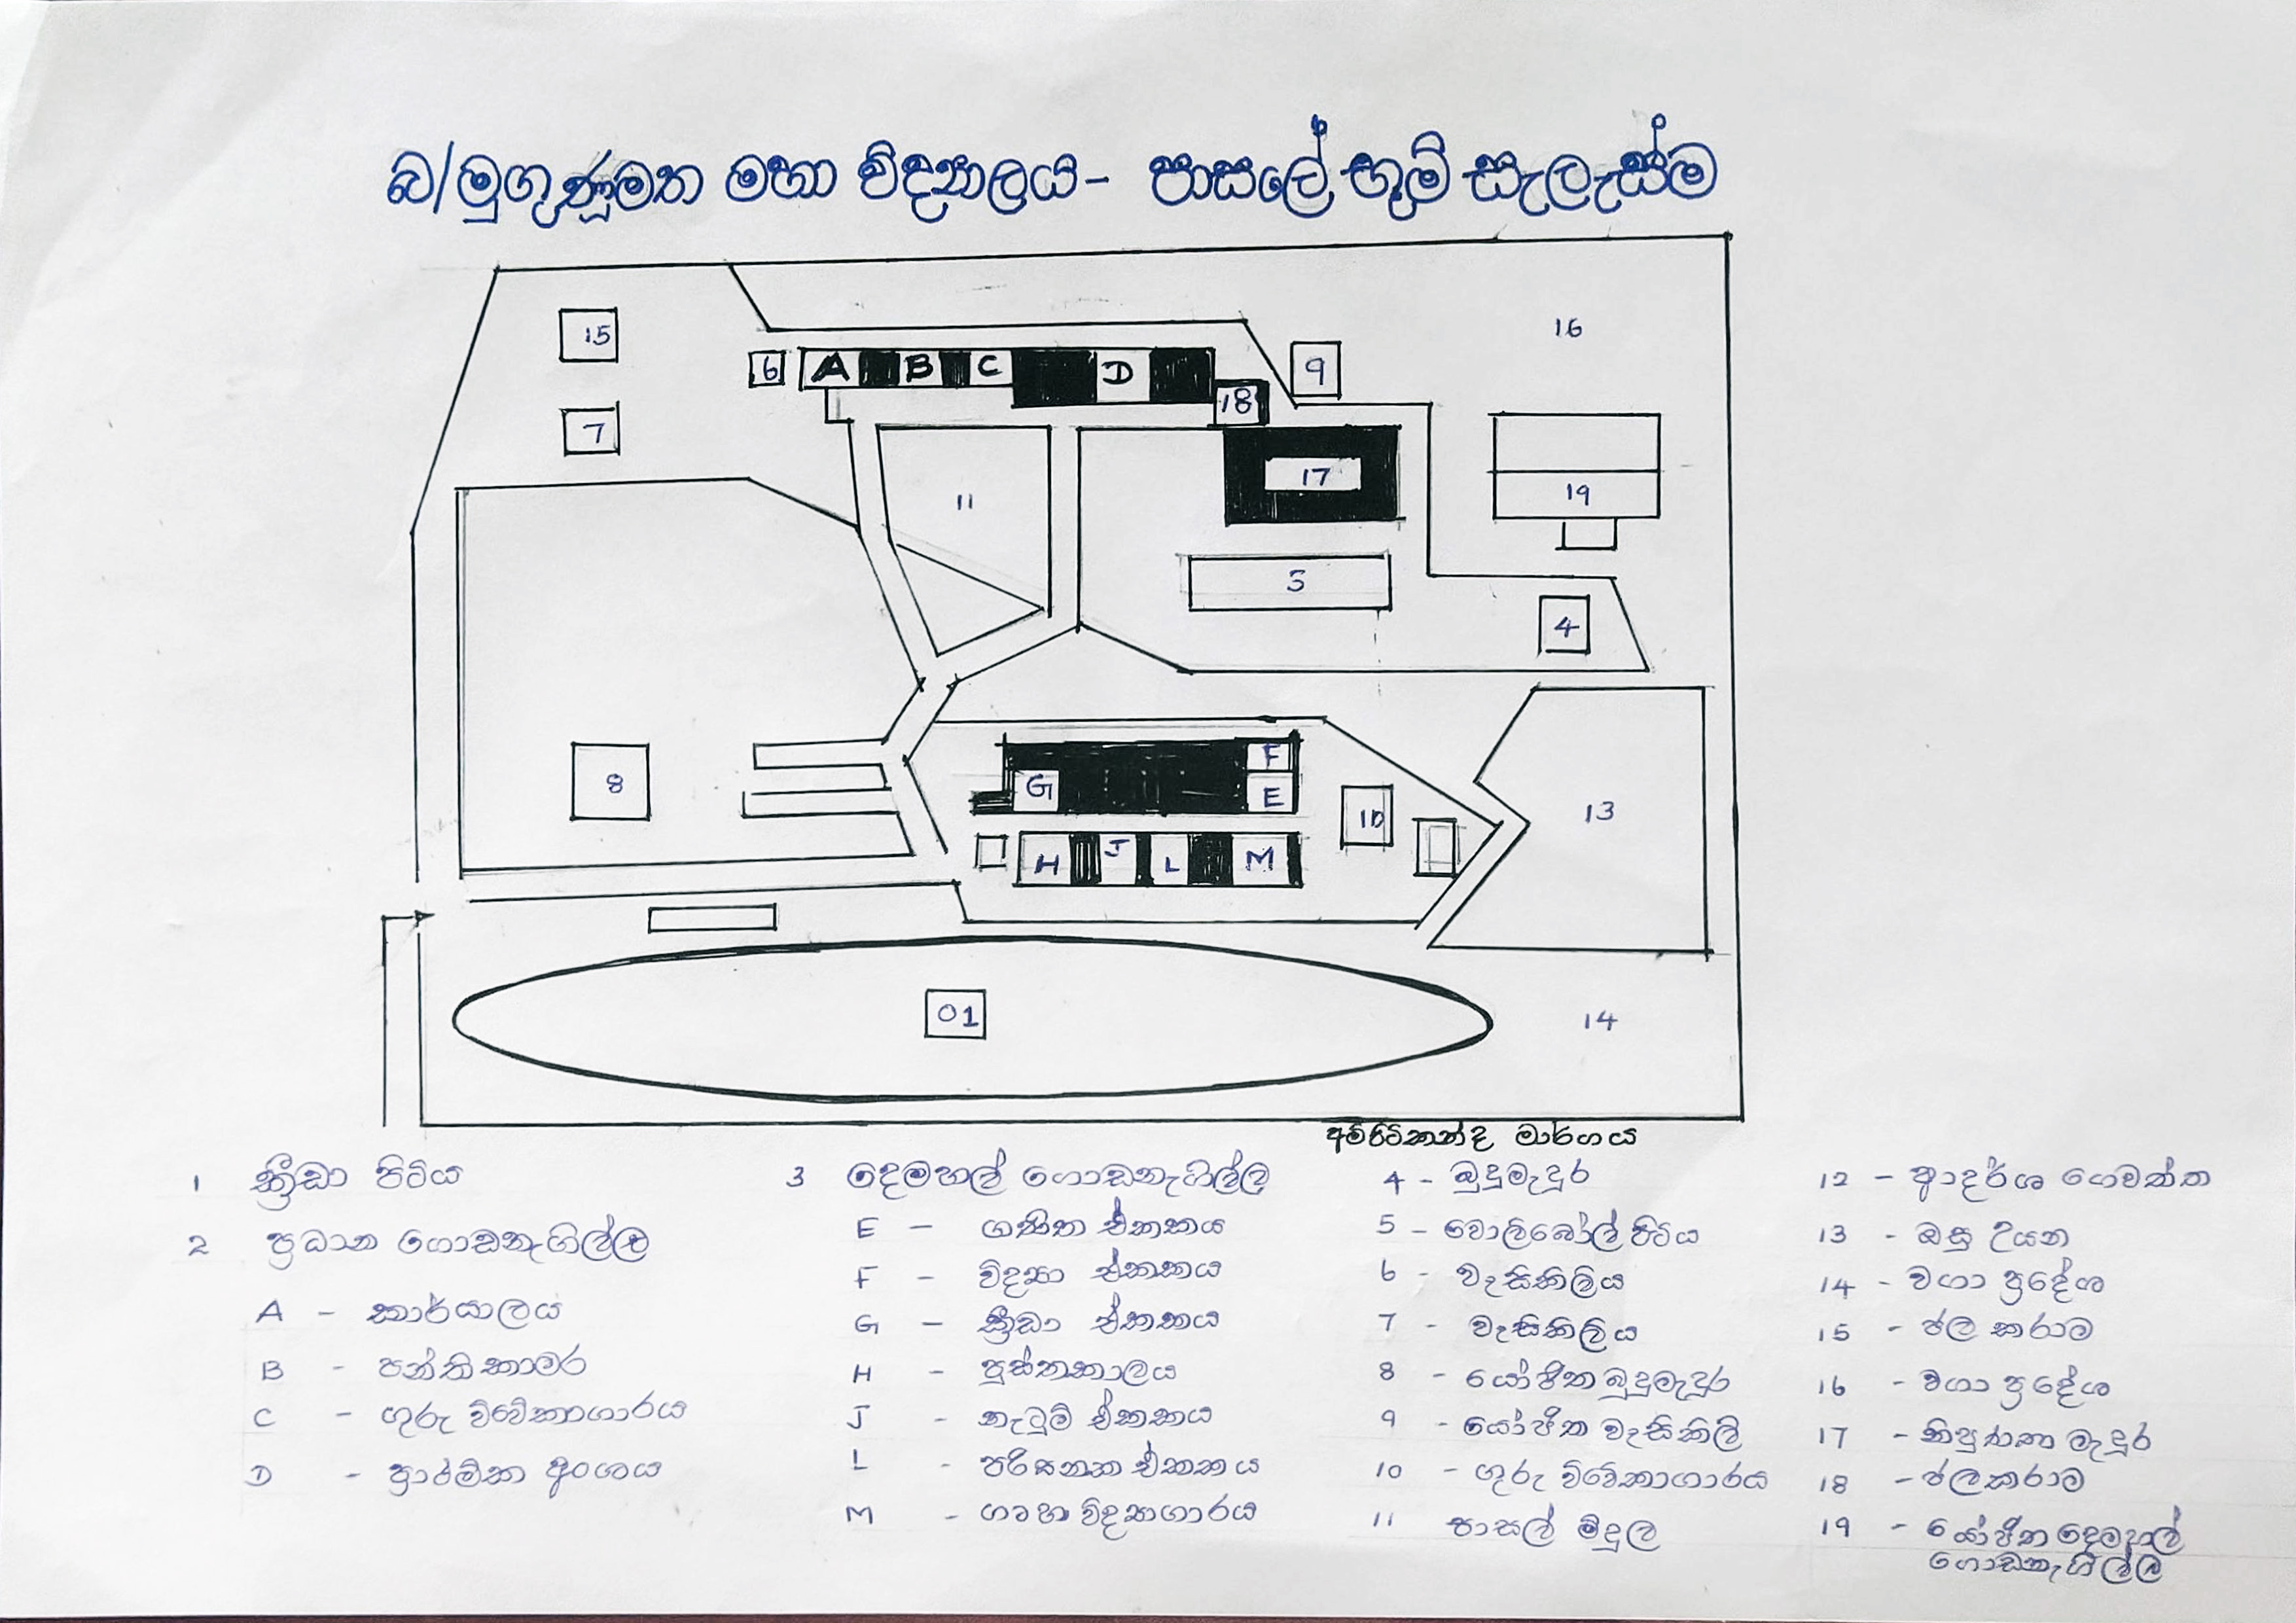 බ/මුගුණුමත මහා විද්‍යාලය - පාසලේ භූමි සැලැස්ම
15
16
6 A B C D 9
18
7
17
11
19
5
4
F
8 G E 10 13
H J L M
01 14
මාර්ගය
1 ක්‍රීඩා පිටිය
2 ප්‍රධාන ගොඩනැගිල්ල
A - කාර්යාලය
B - පන්ති කාමර
C - ගුරු විවේකාගාරය
D - ප්‍රාථමික අංශය
3 දෙමහල් ගොඩනැගිල්ල
E - ගණිත ඒකකය
F - විද්‍යා ඒකකය
G - ක්‍රීඩා ඒකකය
H - පුස්තකාලය
J - නැටුම් ඒකකය
L - පරිගනක ඒකකය
M - ගෘහ විද්‍යාගාරය
4 - බුදුමැදුර
5 - වොලිබෝල් පිටිය
6 - වැසිකිලිය
7 - වැසිකිලිය
8 - යෝජිත බුදුමැදුර
9 - යෝජිත වැසිකිලි
10 - ගුරු විවේකාගාරය
11 පාසල් මිදුල
12 - ආදර්ශ ගෙවත්ත
13 - ඔසු උයන
14 - වගා ප්‍රදේශ
15 - ජල කරාම
16 - වගා ප්‍රදේශ
17 - නිපුණතා මැදුර
18 - ජලකරාම
19 - යෝජිත දෙමහල්
ගොඩනැගිල්ල